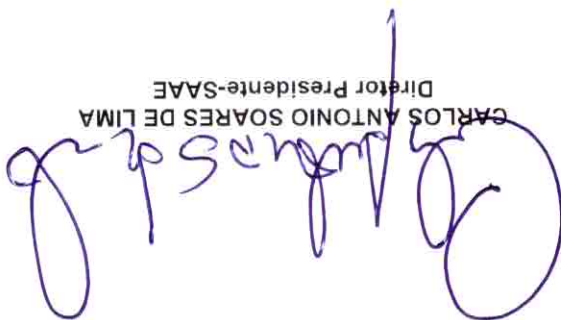 CARLOS ANTONIO SOARES DE LIMA
Diretor Presidente-SAAE